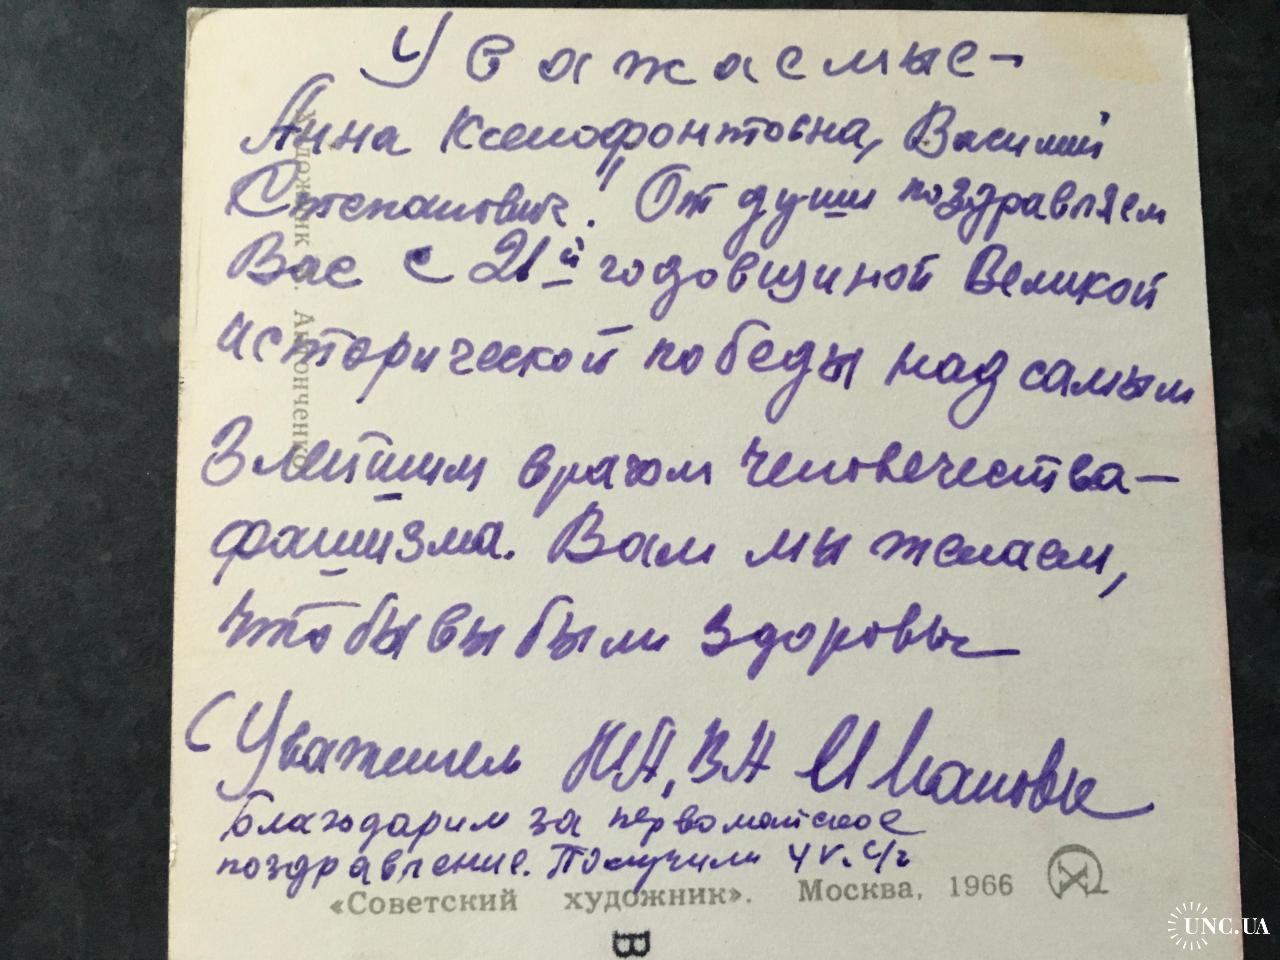 Уважаемые -
Анна Ксенофонтовна, Василий
Степанович! От души поздравляем
Вас с 21й годовщиной Великой
исторической победы над самым
злейшим врагом человечества -
фашизма. Вам мы желаем,
чтобы вы были здоровы
С Уважением НА, ВА
Благодарим за первомайское
поздравление. Получили 4 V.
Художник А. Антонченко
«Советский художник». Москва, 1966
В
UNC.UA